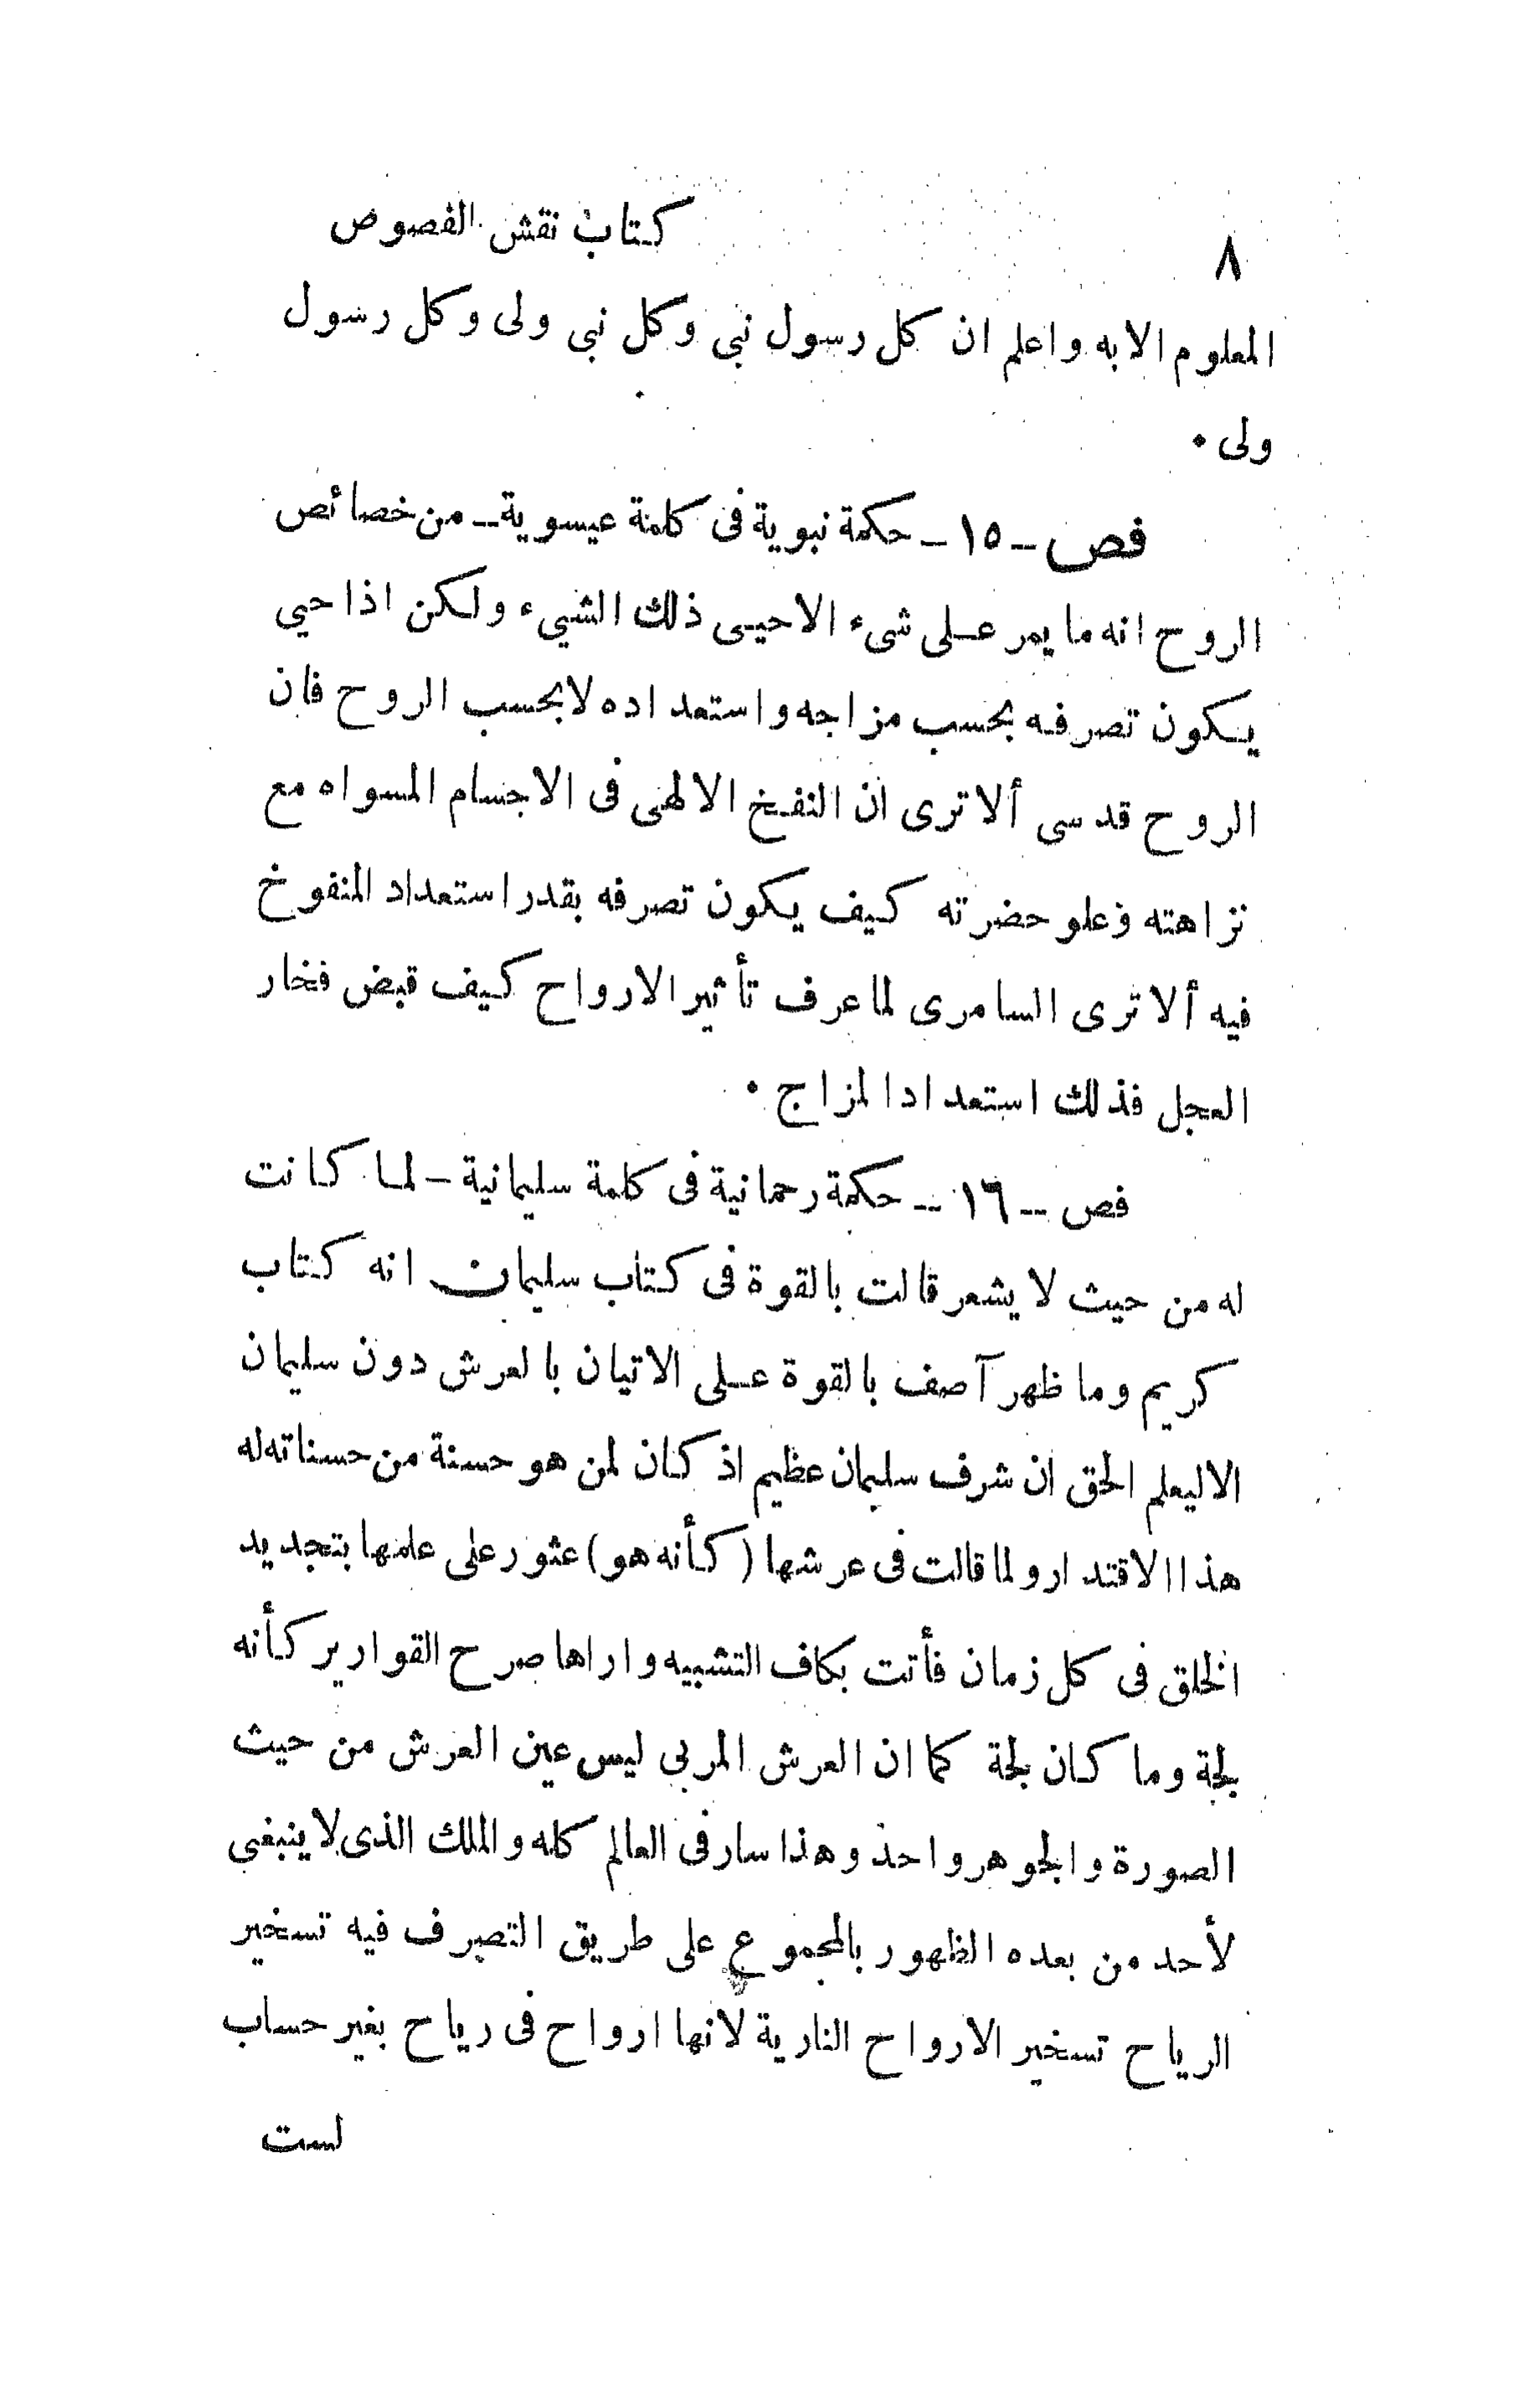 ٨
كتاب نقش الفصوص
المعلوم الا به واعلم ان كل رسول نبى وكل نبى ولى وكل رسول
ولى ٠
فص ــ ١٥ ــ حكمة نبوية فى كلمة عيسوية ــ من خصائص
الروح انه ما يمر على شىء الا حيى ذلك الشيىء ولكن اذا حيي
يكون تصرفه بحسب مزاجه واستعداده لا بحسب الروح فان
الروح قدسى ألا ترى ان النفخ الالهى فى الاجسام المسواه مع
نزاهته وعلو حضرته كيف يكون تصرفه بقدر استعداد المنفوخ
فيه ألا ترى السامرى لما عرف تأثير الارواح كيف قبض فخار
العجل فذلك استعداد المزاج ٠
فص ــ ١٦ ــ حكمة رحمانية فى كلمة سليمانية ــ لما كانت
له من حيث لا يشعر قالت بالقوة فى كتاب سليمان انه كتاب
كريم وما ظهر آصف بالقوة على الاتيان بالعرش دون سليمان
الا ليعلم الحق ان شرف سليمان عظيم اذ كان لمن هو حسنة من حسناته له
هذا الاقتدار ولما قالت فى عرشها (كأنه هو) عثور على علمها بتجديد
الخلق فى كل زمان فأتت بكاف التشبيه واراها صرح القوارير كأنه
لجة وما كان لجة كما ان العرش المربى ليس عين العرش من حيث
الصورة والجوهر واحد وهذا سار فى العالم كله والملك الذى لا ينبغى
لأحد من بعده الظهور بالمجموع على طريق التصرف فيه تسخير
الرياح تسخير الارواح النارية لانها ارواح فى رياح بغير حساب
لست